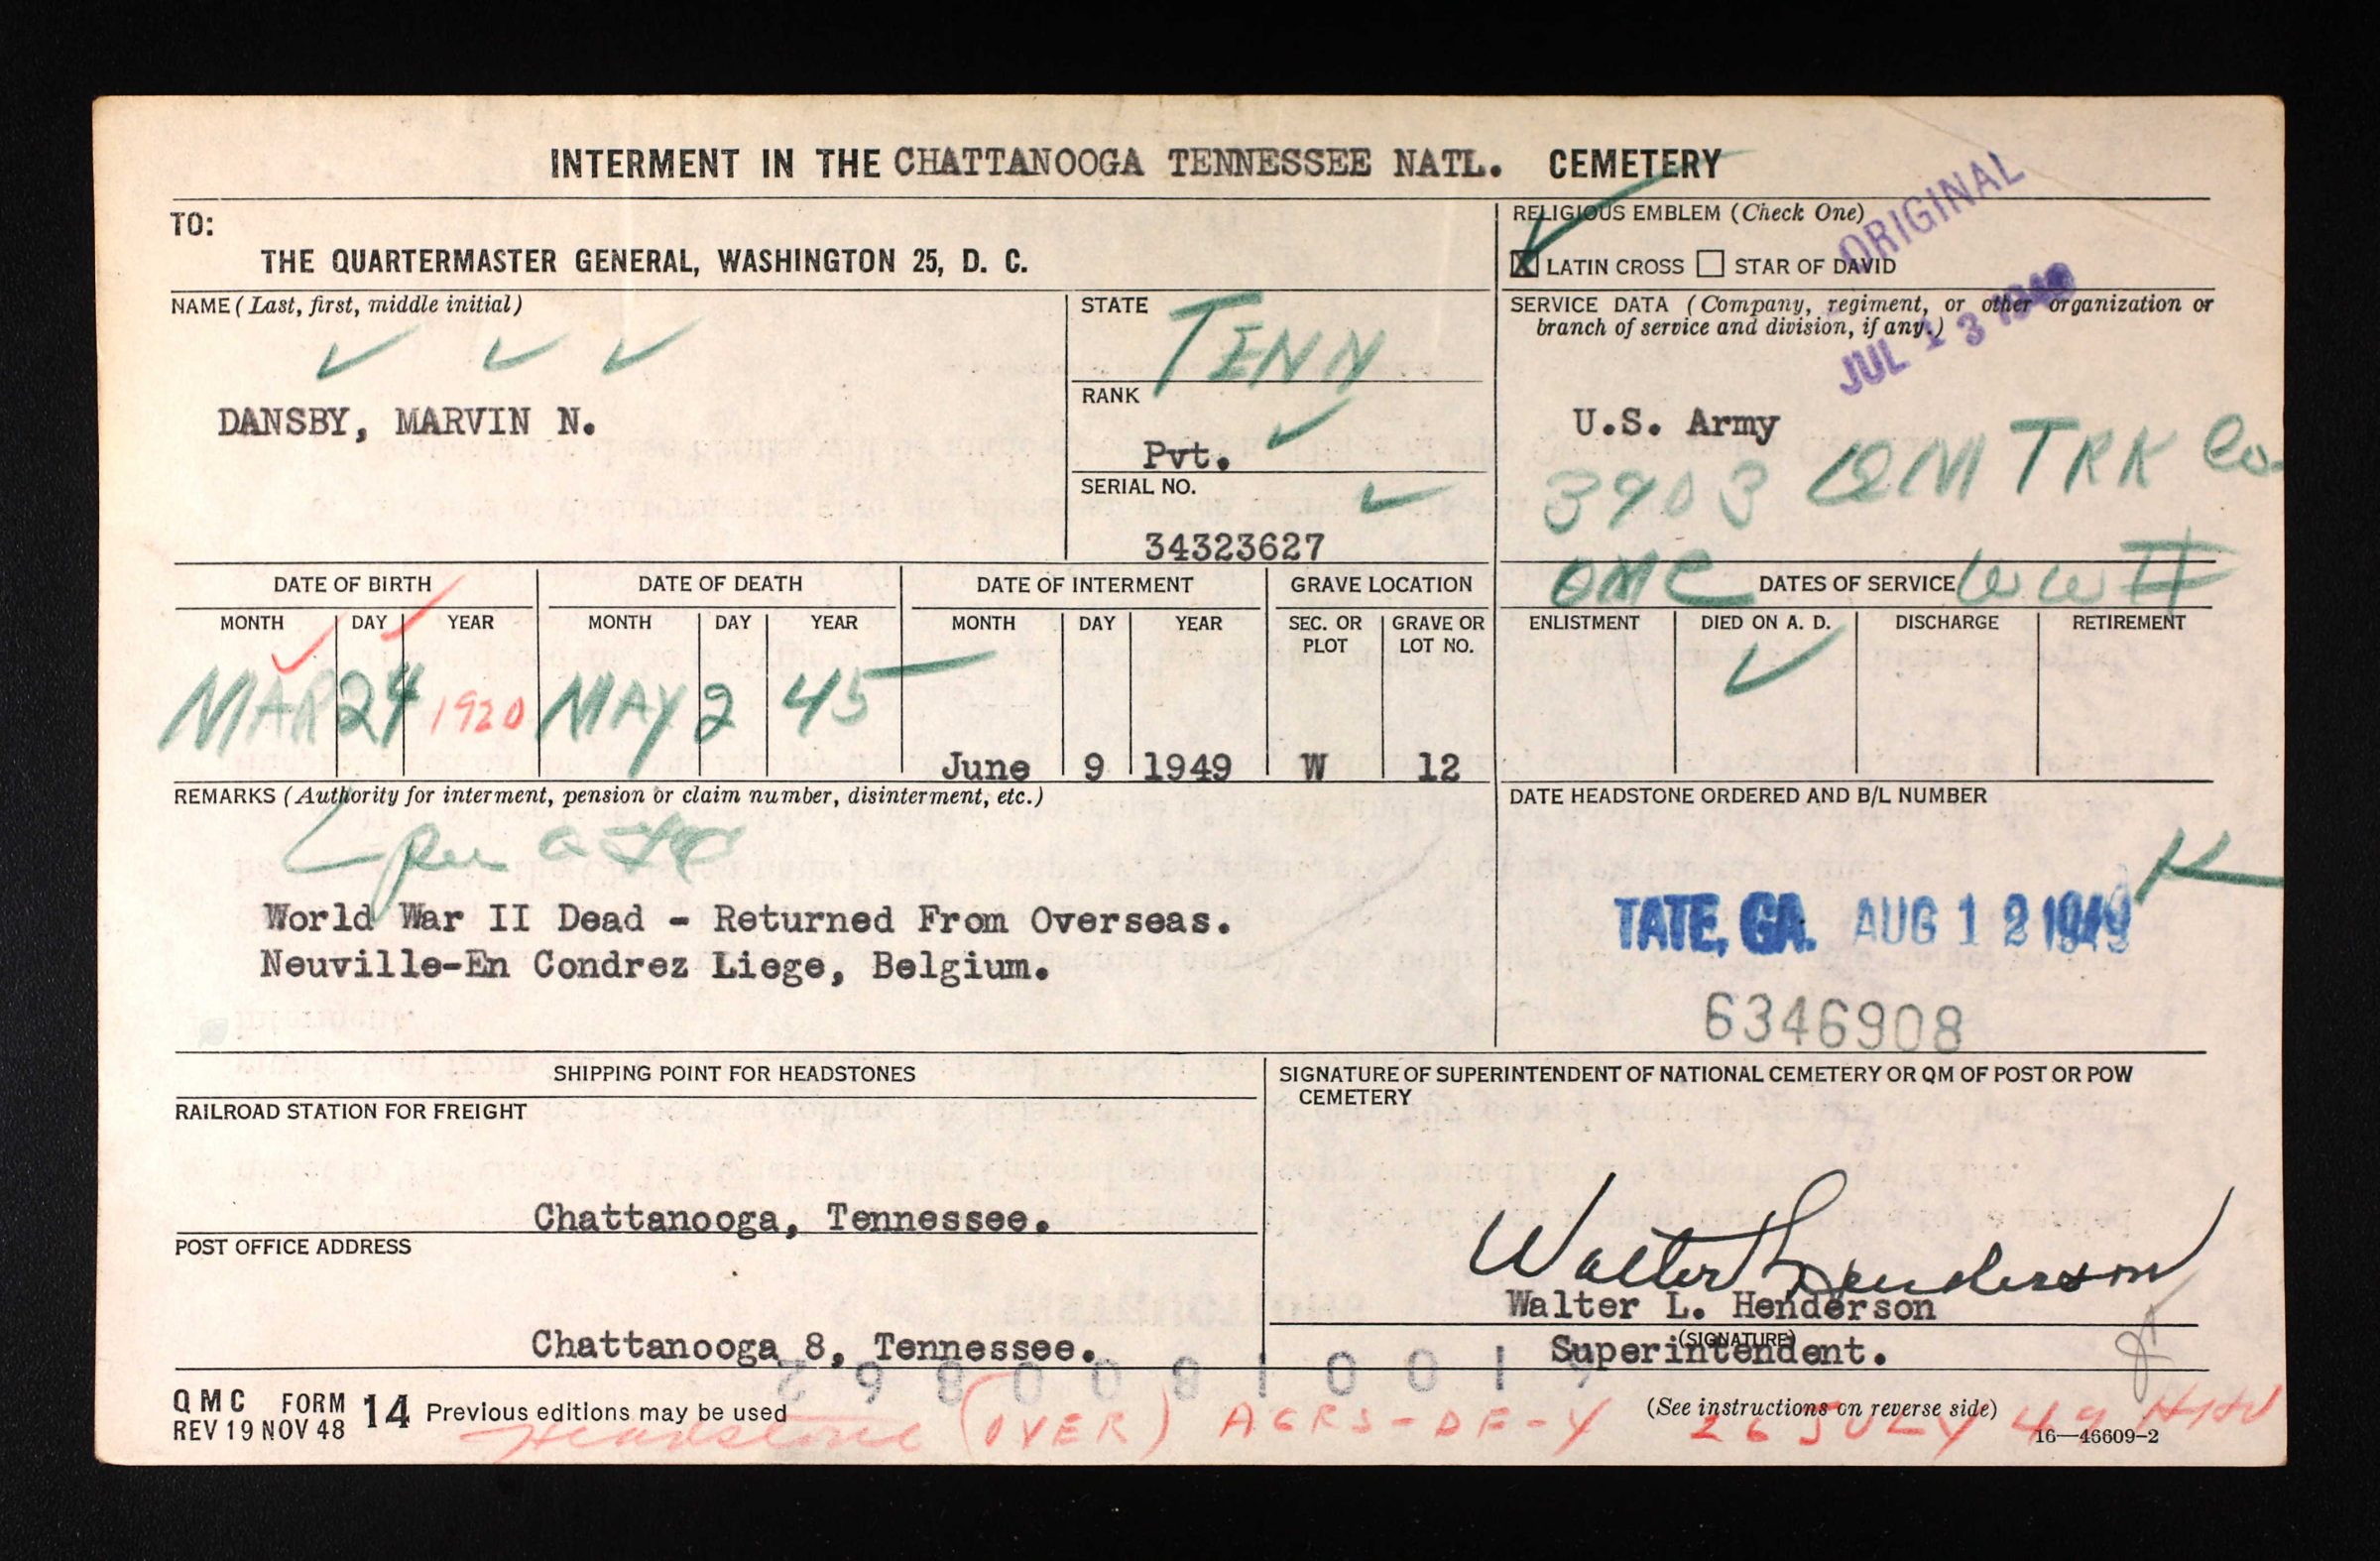 INTERMENT IN THE CHATTANOOGA TENNESSEE NATL. CEMETERY
TO:
THE QUARTERMASTER GENERAL, WASHINGTON 25, D. C.
RELIGIOUS EMBLEM (Check One)
X LATIN CROSS STAR OF DAVID
ORIGINAL
JUL 13 1949
NAME (Last, first, middle initial)
DANSBY, MARVIN N.
STATE
TENN
RANK
Pvt.
SERIAL NO.
34323627
SERVICE DATA (Company, regiment, or other organization or
branch of service and division, if any.)
U.S. Army
3903 QM TRK Co.
QMC
DATES OF SERVICE WW II
DATE OF BIRTH DATE OF DEATH DATE OF INTERMENT GRAVE LOCATION
MONTH DAY YEAR MONTH DAY YEAR MONTH DAY YEAR SEC. OR PLOT GRAVE OR LOT NO. ENLISTMENT DIED ON A. D. DISCHARGE RETIREMENT
MAR 24 1920 MAY 2 45 June 9 1949 W 12
REMARKS (Authority for interment, pension or claim number, disinterment, etc.)
World War II Dead - Returned From Overseas.
Neuville-En Condrez Liege, Belgium.
DATE HEADSTONE ORDERED AND B/L NUMBER
TATE, GA. AUG 12 1949
6346908
SHIPPING POINT FOR HEADSTONES
RAILROAD STATION FOR FREIGHT
Chattanooga, Tennessee.
POST OFFICE ADDRESS
Chattanooga 8, Tennessee.
SIGNATURE OF SUPERINTENDENT OF NATIONAL CEMETERY OR QM OF POST OR POW
CEMETERY
Walter L Henderson
Walter L. Henderson
(SIGNATURE)
Superintendent.
QMC FORM 14 Previous editions may be used
REV 19 NOV 48
(See instructions on reverse side)
Headstone (OVER) AGRS-DF-Y 26 JULY 49 HHW
16—46609-2